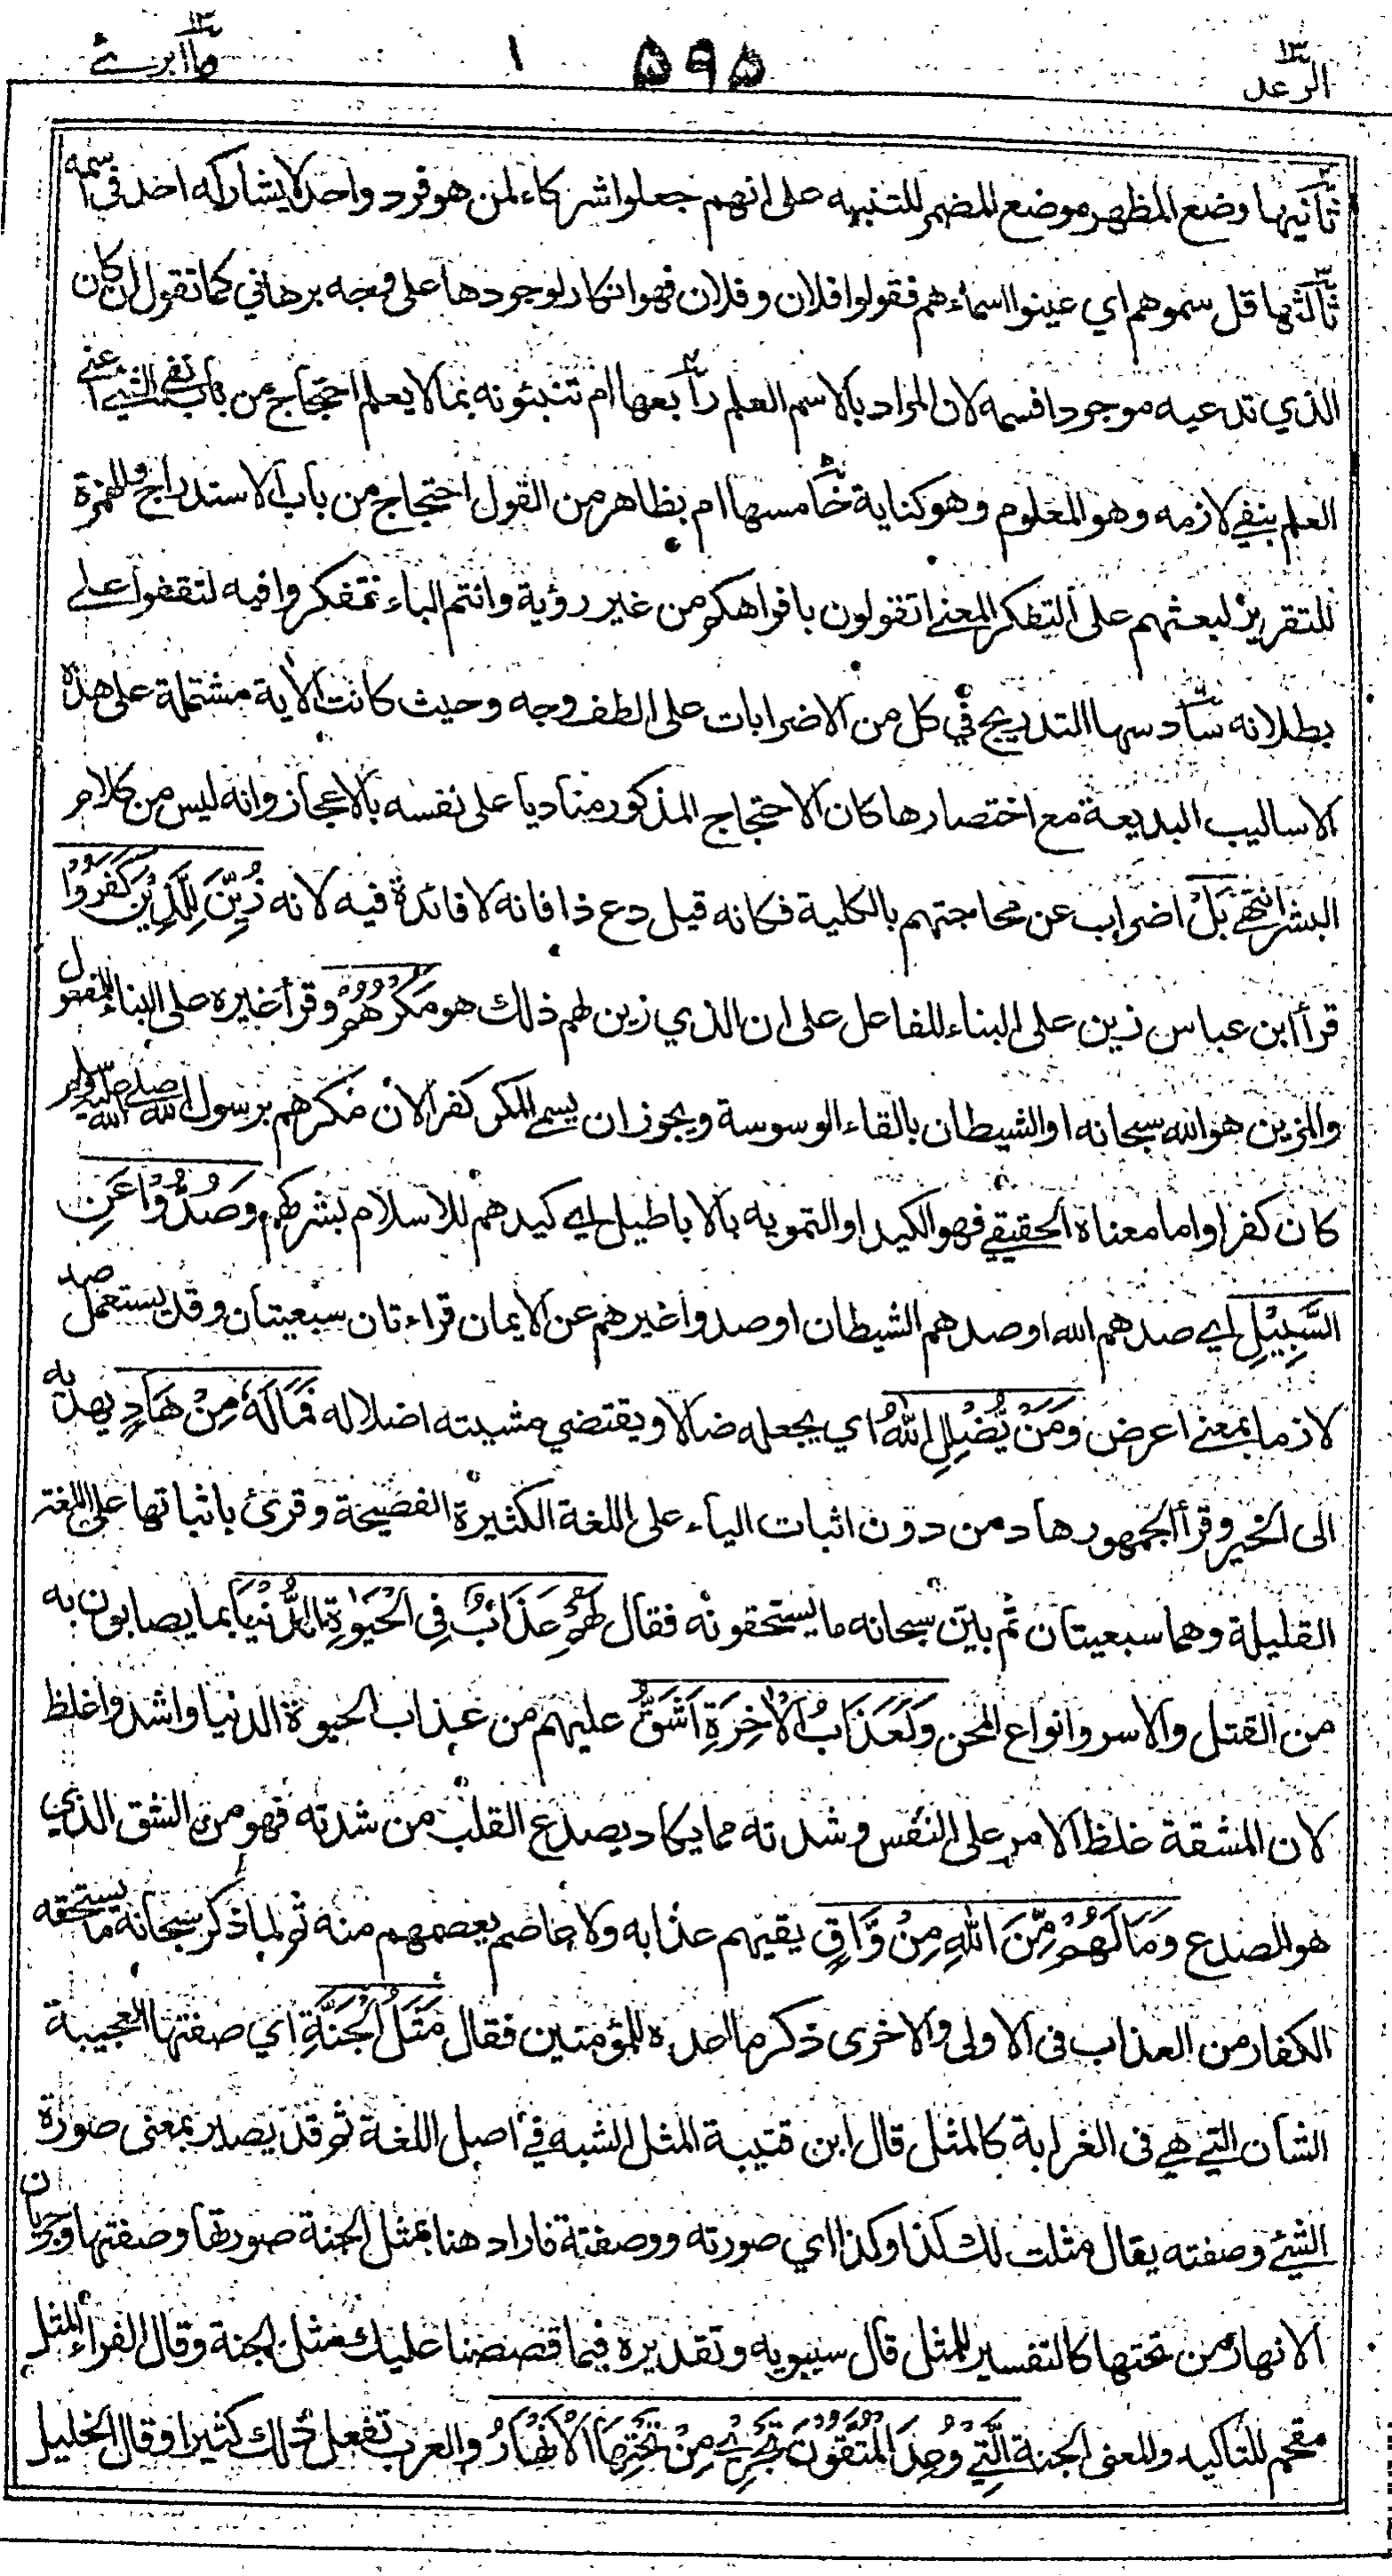 الرعد ١٣
٥٩٥
وما ابرئ ١٣
ثانيها وضع المظهر موضع المضمر للتنبيه على انهم جعلوا شركاء لمن هو فرد واحد لا يشاركه احد في اسمه
ثالثها قل سموهم اي عينوا اسماءهم فقولوا فلان وفلان فهو انكار لوجودها على وجه برهاني كما تقول ان كان
الذي تدعيه موجودا فسمه لان المراد بالاسم العلم رابعها ام تنبئونه بما لا يعلم احتجاج من باب نفي الشيء اعني
العلم بنفي لازمه وهو المعلوم وهو كناية خامسها ام بظاهر من القول احتجاج من باب الاستدراج والهمزة
للتقرير لبعثهم على التفكر المعنى اتقولون بافواهكم من غير رؤية وانتم البباء تتفكروا فيه لتقفوا على
بطلانه سادسها التدريج في كل من الاضرابات على الطف وجه وحيث كانت الاية مشتملة على هذه
الاساليب البديعة مع اختصارها كان الاحتجاج المذكور مناديا على نفسه بالاعجاز وانه ليس من كلام
البشر انتهى بَلْ اضراب عن محاجتهم بالكلية فكانه قيل دع ذا فانه لا فائدة فيه لانه زُيِّنَ لِلَّذِيْنَ كَفَرُوْا
قرأ ابن عباس زين على البناء للفاعل على ان الذي زين لهم ذلك هو مَكْرُهُمْ وقرأ غيره على البناء للمفعول
والمزين هو الله سبحانه او الشيطان بالقاء الوسوسة ويجوز ان يسمى المكر كفرا لان مكرهم برسول الله صلى الله عليه وسلم
كان كفرا واما معناه الحقيقي فهو الكيد او التمويه بالاباطيل اي كيدهم للاسلام بشركهم وَصُدُّوْا عَنِ
السَّبِيْلِ اي صدهم الله او صدهم الشيطان او صدوا غيرهم عن الايمان قراءتان سبعيتان وقد يستعمل صد
لازما بمعنى اعرض وَمَنْ يُّضْلِلِ اللهُ اي يجعله ضالا ويقتضي مشيته اضلاله فَمَا لَهٗ مِنْ هَادٍ يهديه
الى الخير وقرأ الجمهور هاد من دون اثبات الياء على اللغة الكثيرة الفصيحة وقرئ باثباتها على اللغة
القليلة وهما سبعيتان ثم بين سبحانه ما يستحقونه فقال لَهُمْ عَذَابٌ فِى الْحَيٰوةِ الدُّنْيَا بما يصابون به
من القتل والاسر وانواع المحن وَلَعَذَابُ الْاٰخِرَةِ اَشَقُّ عليهم من عذاب الحيوة الدنيا واشد واغلظ
لان المشقة غلظ الامر على النفس وشدته مما يكاد يصدع القلب من شدته فهو من الشق الذي
هو الصدع وَمَا لَهُمْ مِّنَ اللهِ مِنْ وَّاقٍ يقيهم عذابه ولا عاصم يعصمهم منه ثم لما ذكر سبحانه ما يستحقه
الكفار من العذاب فى الاولى والاخرى ذكر ما اعده للمؤمنين فقال مَثَلُ الْجَنَّةِ اي صفتها العجيبة
الشأن التي هي فى الغرابة كالمثل قال ابن قتيبة المثل الشبه في اصل اللغة ثم قد يصير بمعنى صورة
الشيء وصفته يقال مثلت لك كذا وكذا اي صورته ووصفتة فاراد هنا بمثل الجنة صورتها وصفتها وجريان
الانهار من تحتها كالتفسير للمثل قال سيبويه وتقديره فيما قصصنا عليك مثل الجنة وقال الفراء المثل
مقحم للتاكيد والمعنى الجنة الَّتِيْ وُعِدَ الْمُتَّقُوْنَ تَجْرِيْ مِنْ تَحْتِهَا الْاَنْهَارُ والعرب تفعل ذلك كثيرا وقال الخليل